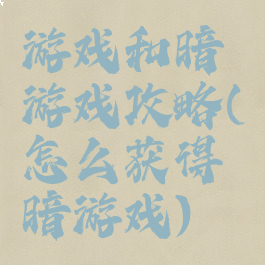 游戏和暗
游戏攻略(
怎么获得
暗游戏)